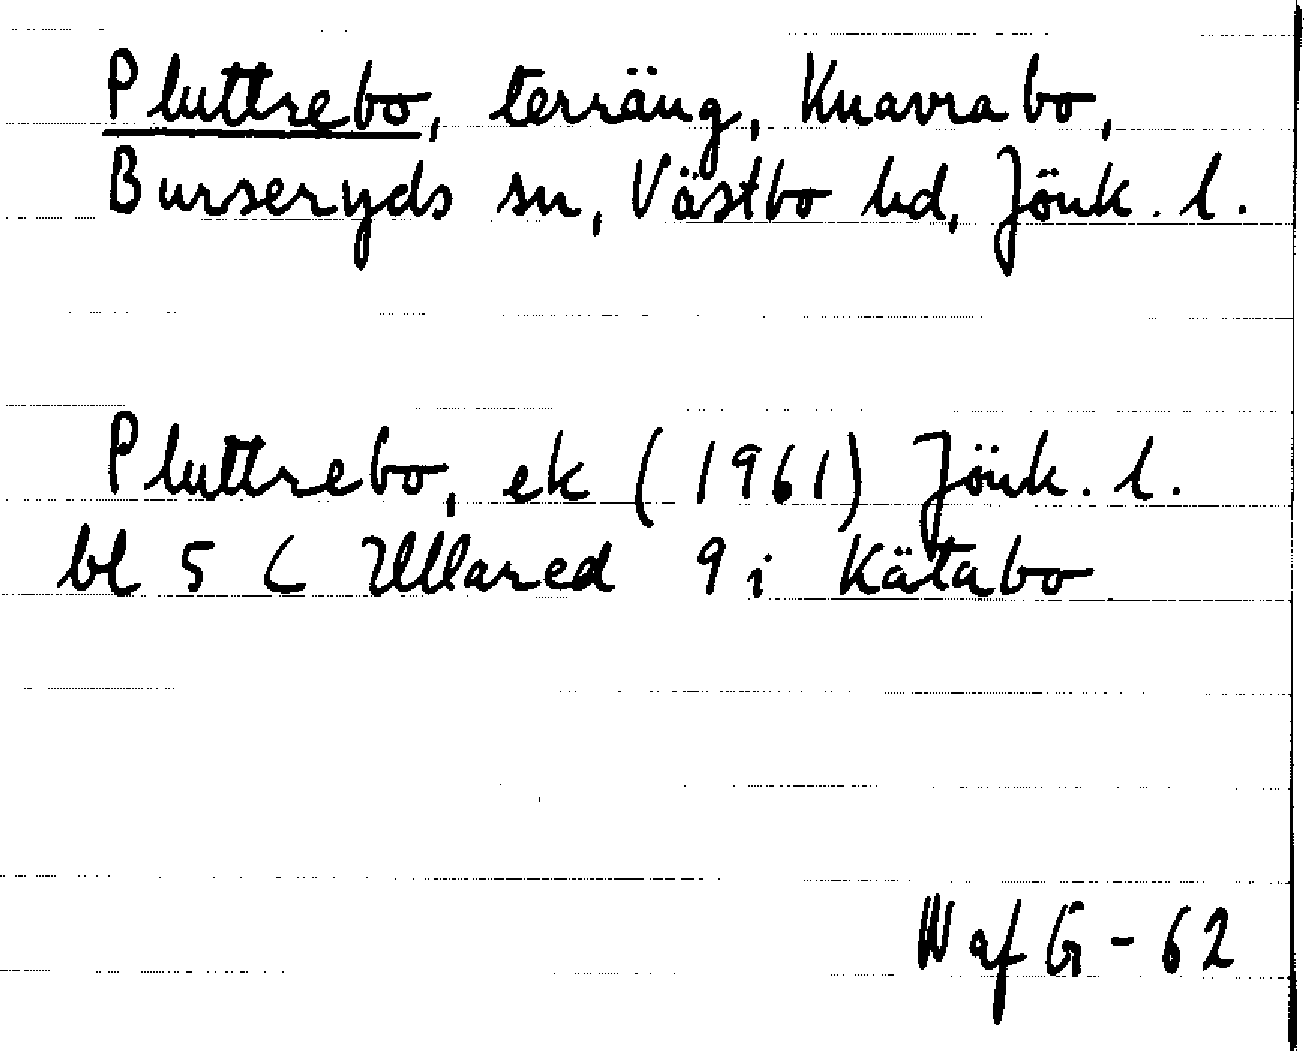 Pluttrebo, terräng, Knavrabo,
Burseryds sn, Västbo hd, Jönk. l.
Pluttrebo, ek (1961) Jönk. l.
bl 5 C Ullared 9 i Kätabo
W af G - 62